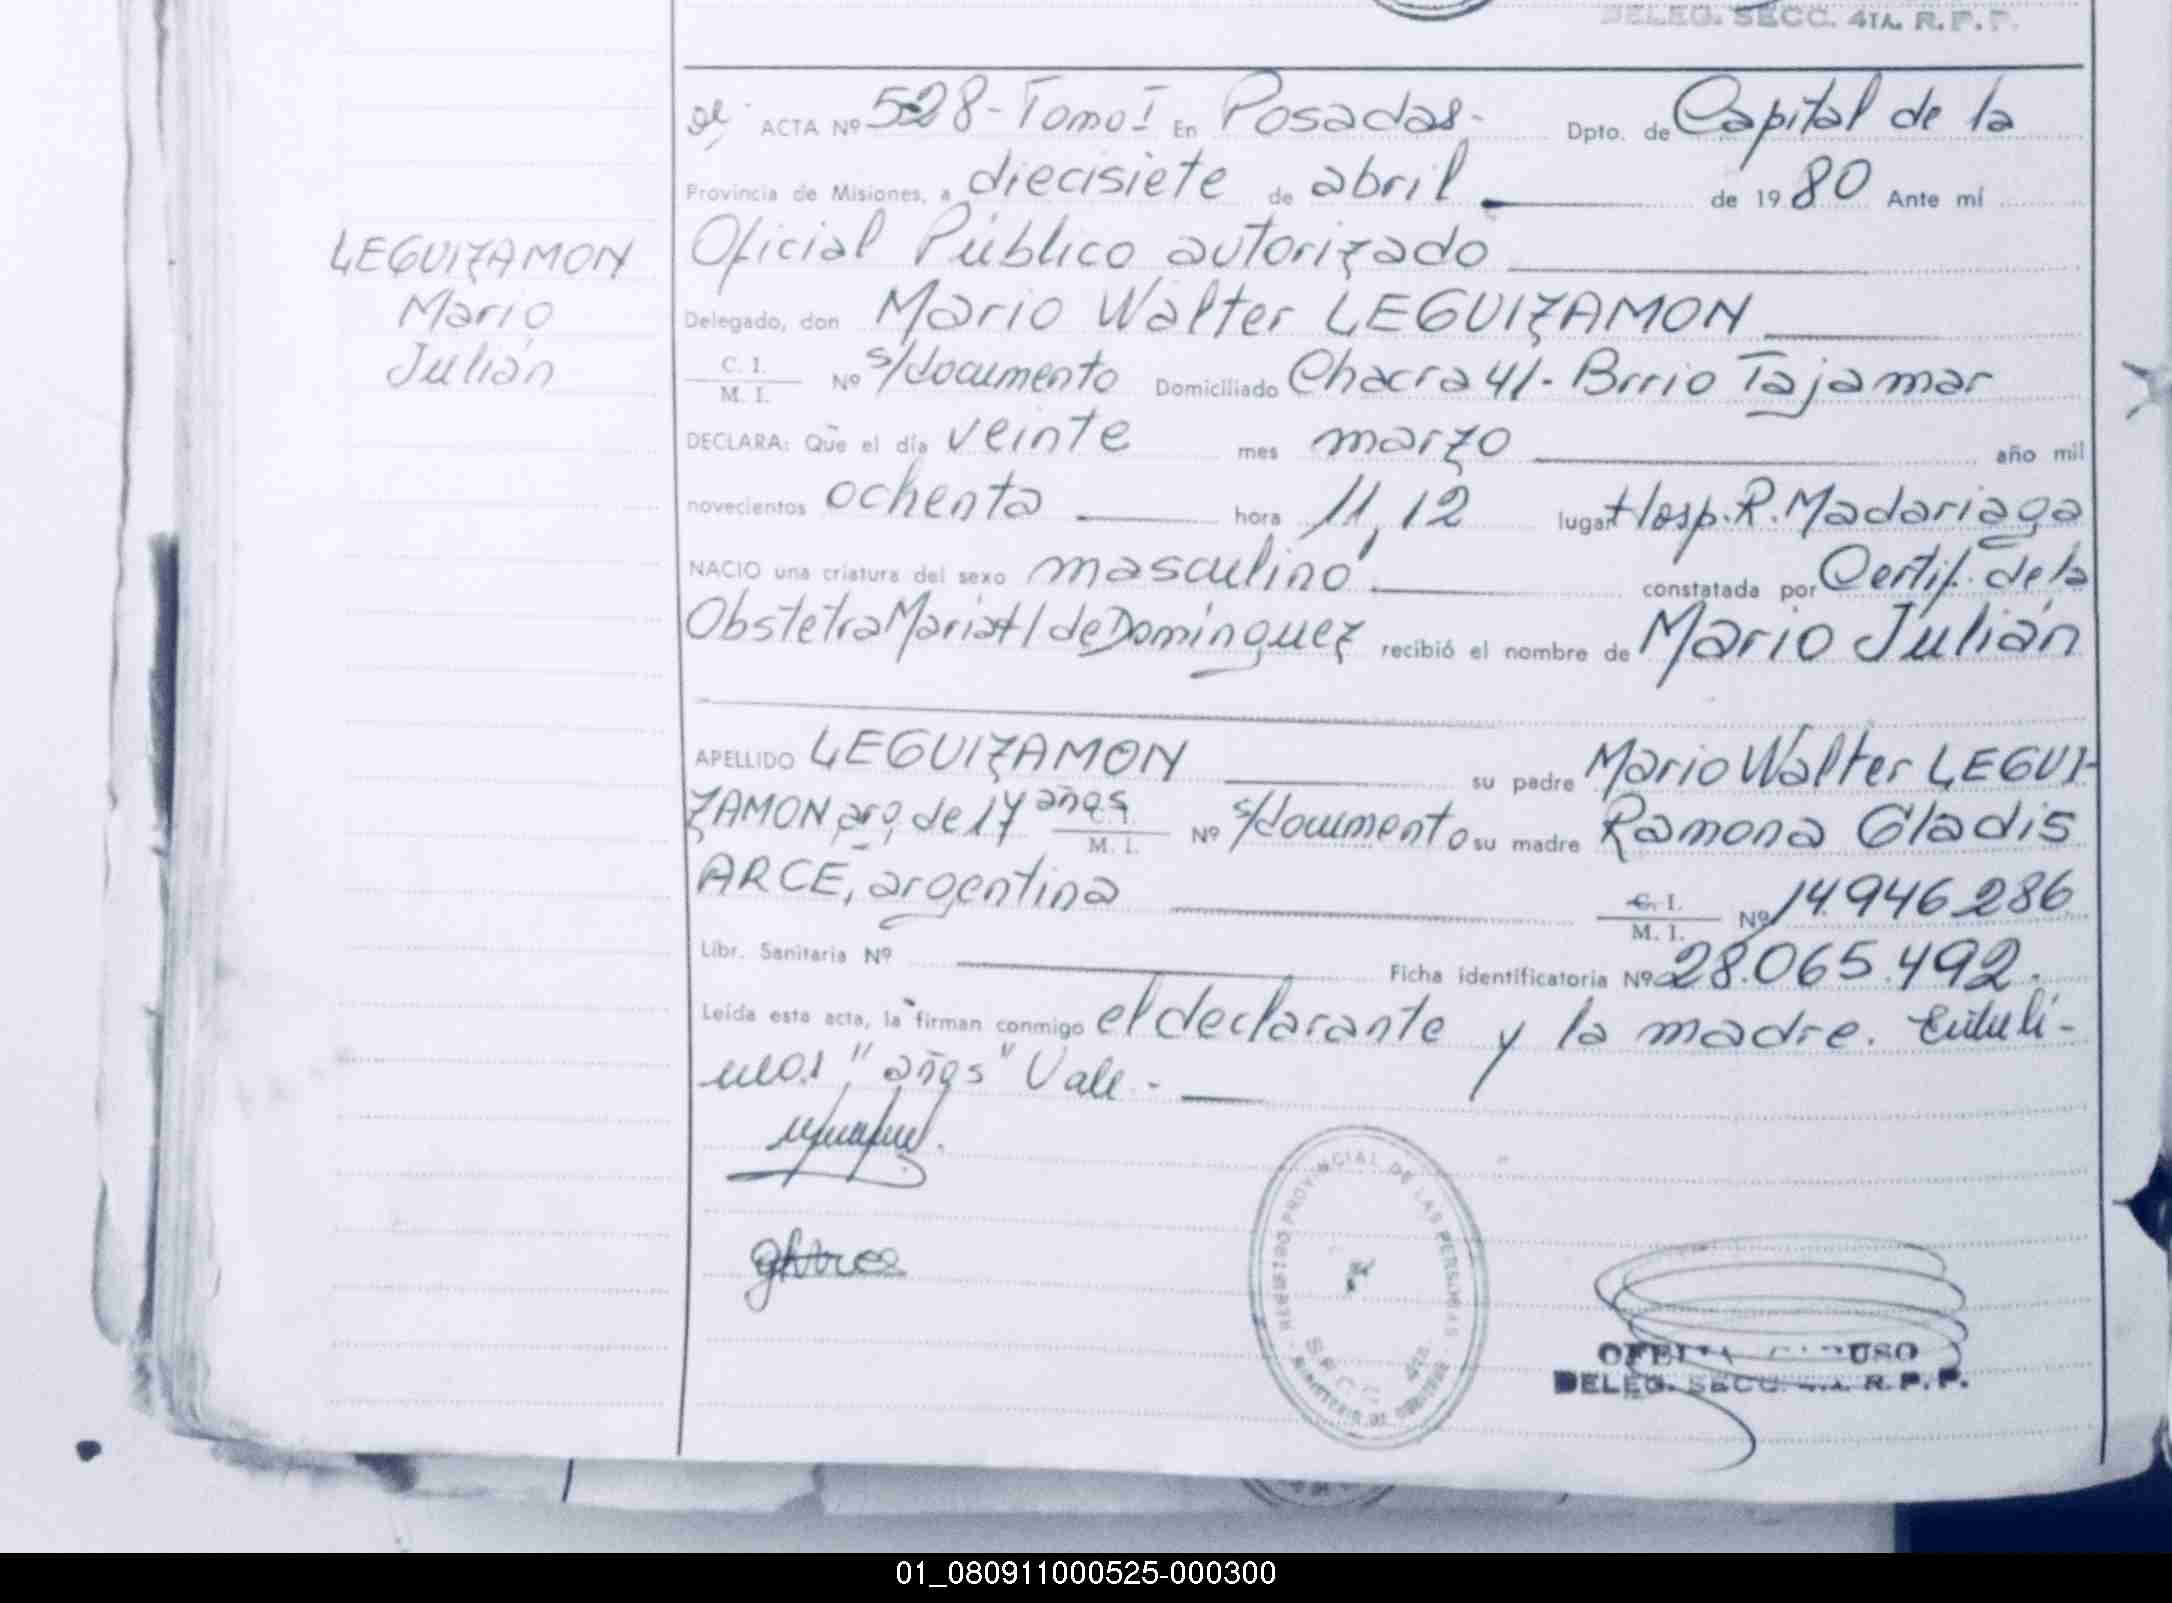 DELEG. SECC. 4TA. R.P.P.
ACTA Nº 528 - Tomo I En Posadas - Dpto. de Capital de la
Provincia de Misiones, a diecisiete de abril de 1980 Ante mí
Oficial Público autorizado
LEGUIZAMON
Mario
Julián
Delegado, don Mario Walter LEGUIZAMON
C. I.
M. I. Nº s/documento Domiciliado Chacra 41 - Brrio Tajamar
DECLARA: Que el día veinte mes marzo año mil
novecientos ochenta hora 11,12 lugar Hosp. R. Madariaga
NACIO una criatura del sexo masculino constatada por Certif. de la
Obstetra Maria H de Domínguez recibió el nombre de Mario Julián
APELLIDO LEGUIZAMON su padre Mario Walter LEGUI-
ZAMON, arg, de 17 años C. I.
M. I. Nº s/documento su madre Ramona Gladis
ARCE, argentina C. I.
M. I. Nº 14.946.286
Libr. Sanitaria Nº Ficha identificatoria Nº 28.065.492.
Leída esta acta, la firman conmigo el declarante y la madre.
"años" Vale. -
REGISTRO PROVINCIAL DE LAS PERSONAS
SECC. 4TA.
DELEG. SECC. 4TA. R.P.P.
01_080911000525-000300